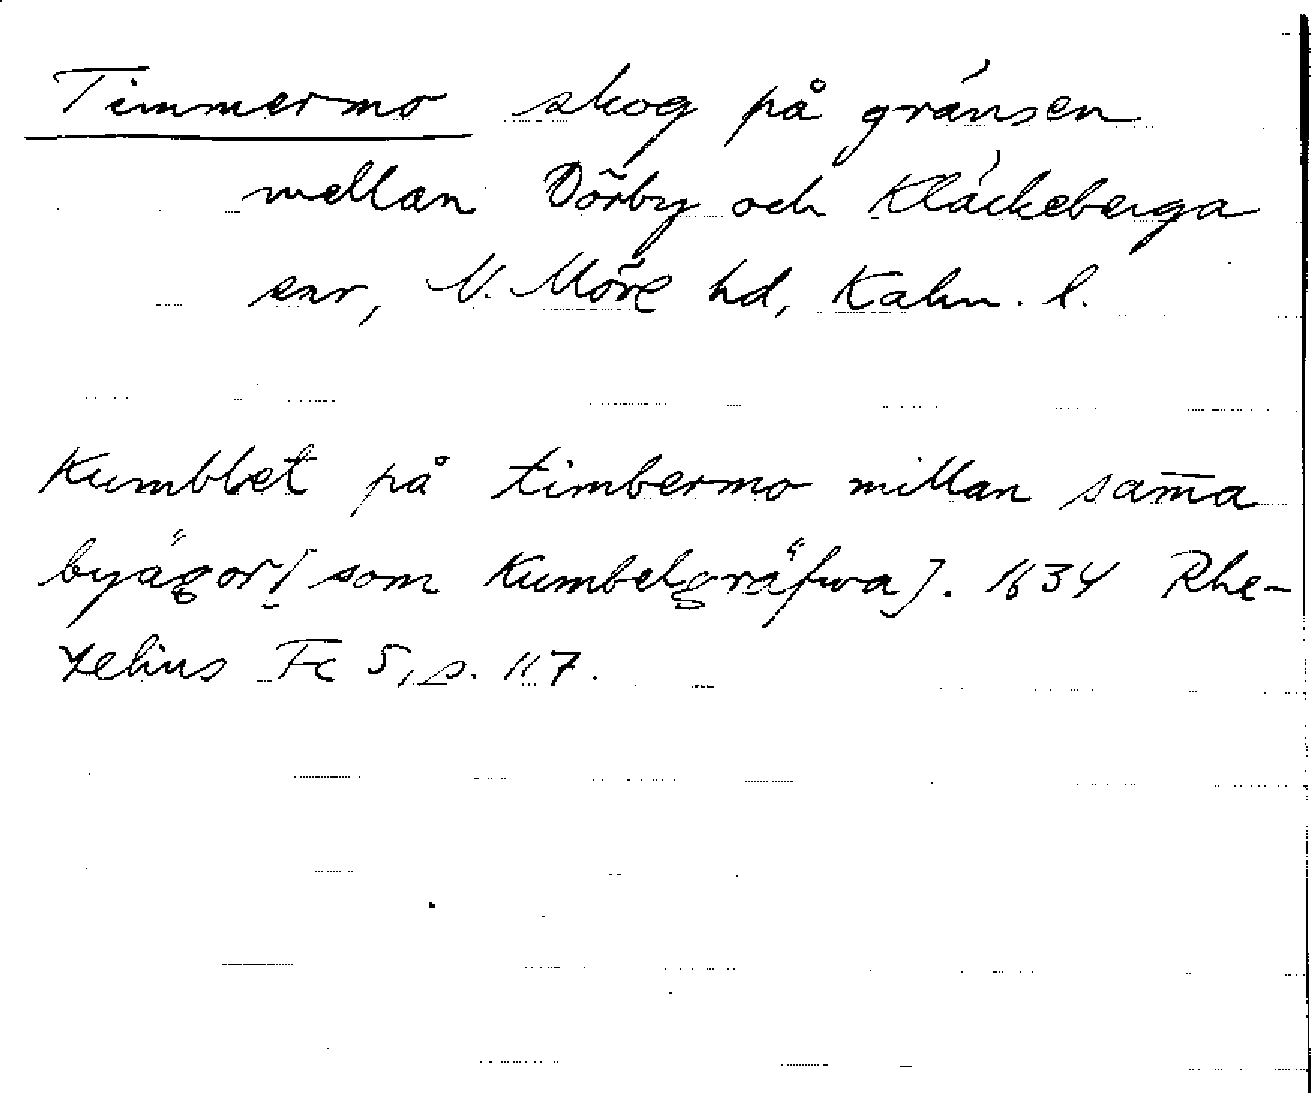 Timmermo skog på gränsen
mellan Dörby och Kläckeberga
snr, N. Möre hd, Kalm. l.
Kumblet på timbermo millan sam̄a
byägor [som Kumbelgräfwa]. 1634 Rhe-
zelius Fc 5, s. 117.